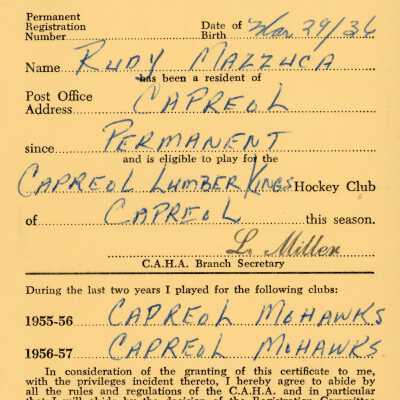 Permanent
Registration
Number
Date of
Birth Mar 29/36
Name RUDY MAZZUCA
has been a resident of
Post Office
Address CAPREOL
since PERMANENT
and is eligible to play for the
CAPREOL LUMBER KINGS Hockey Club
of CAPREOL this season.
L. Miller
C.A.H.A. Branch Secretary
During the last two years I played for the following clubs:
1955-56 CAPREOL MOHAWKS
1956-57 CAPREOL MOHAWKS
In consideration of the granting of this certificate to me,
with the privileges incident thereto, I hereby agree to abide by
all the rules and regulations of the C.A.H.A. and in particular
that I will abide by the decision of the Registration Committee